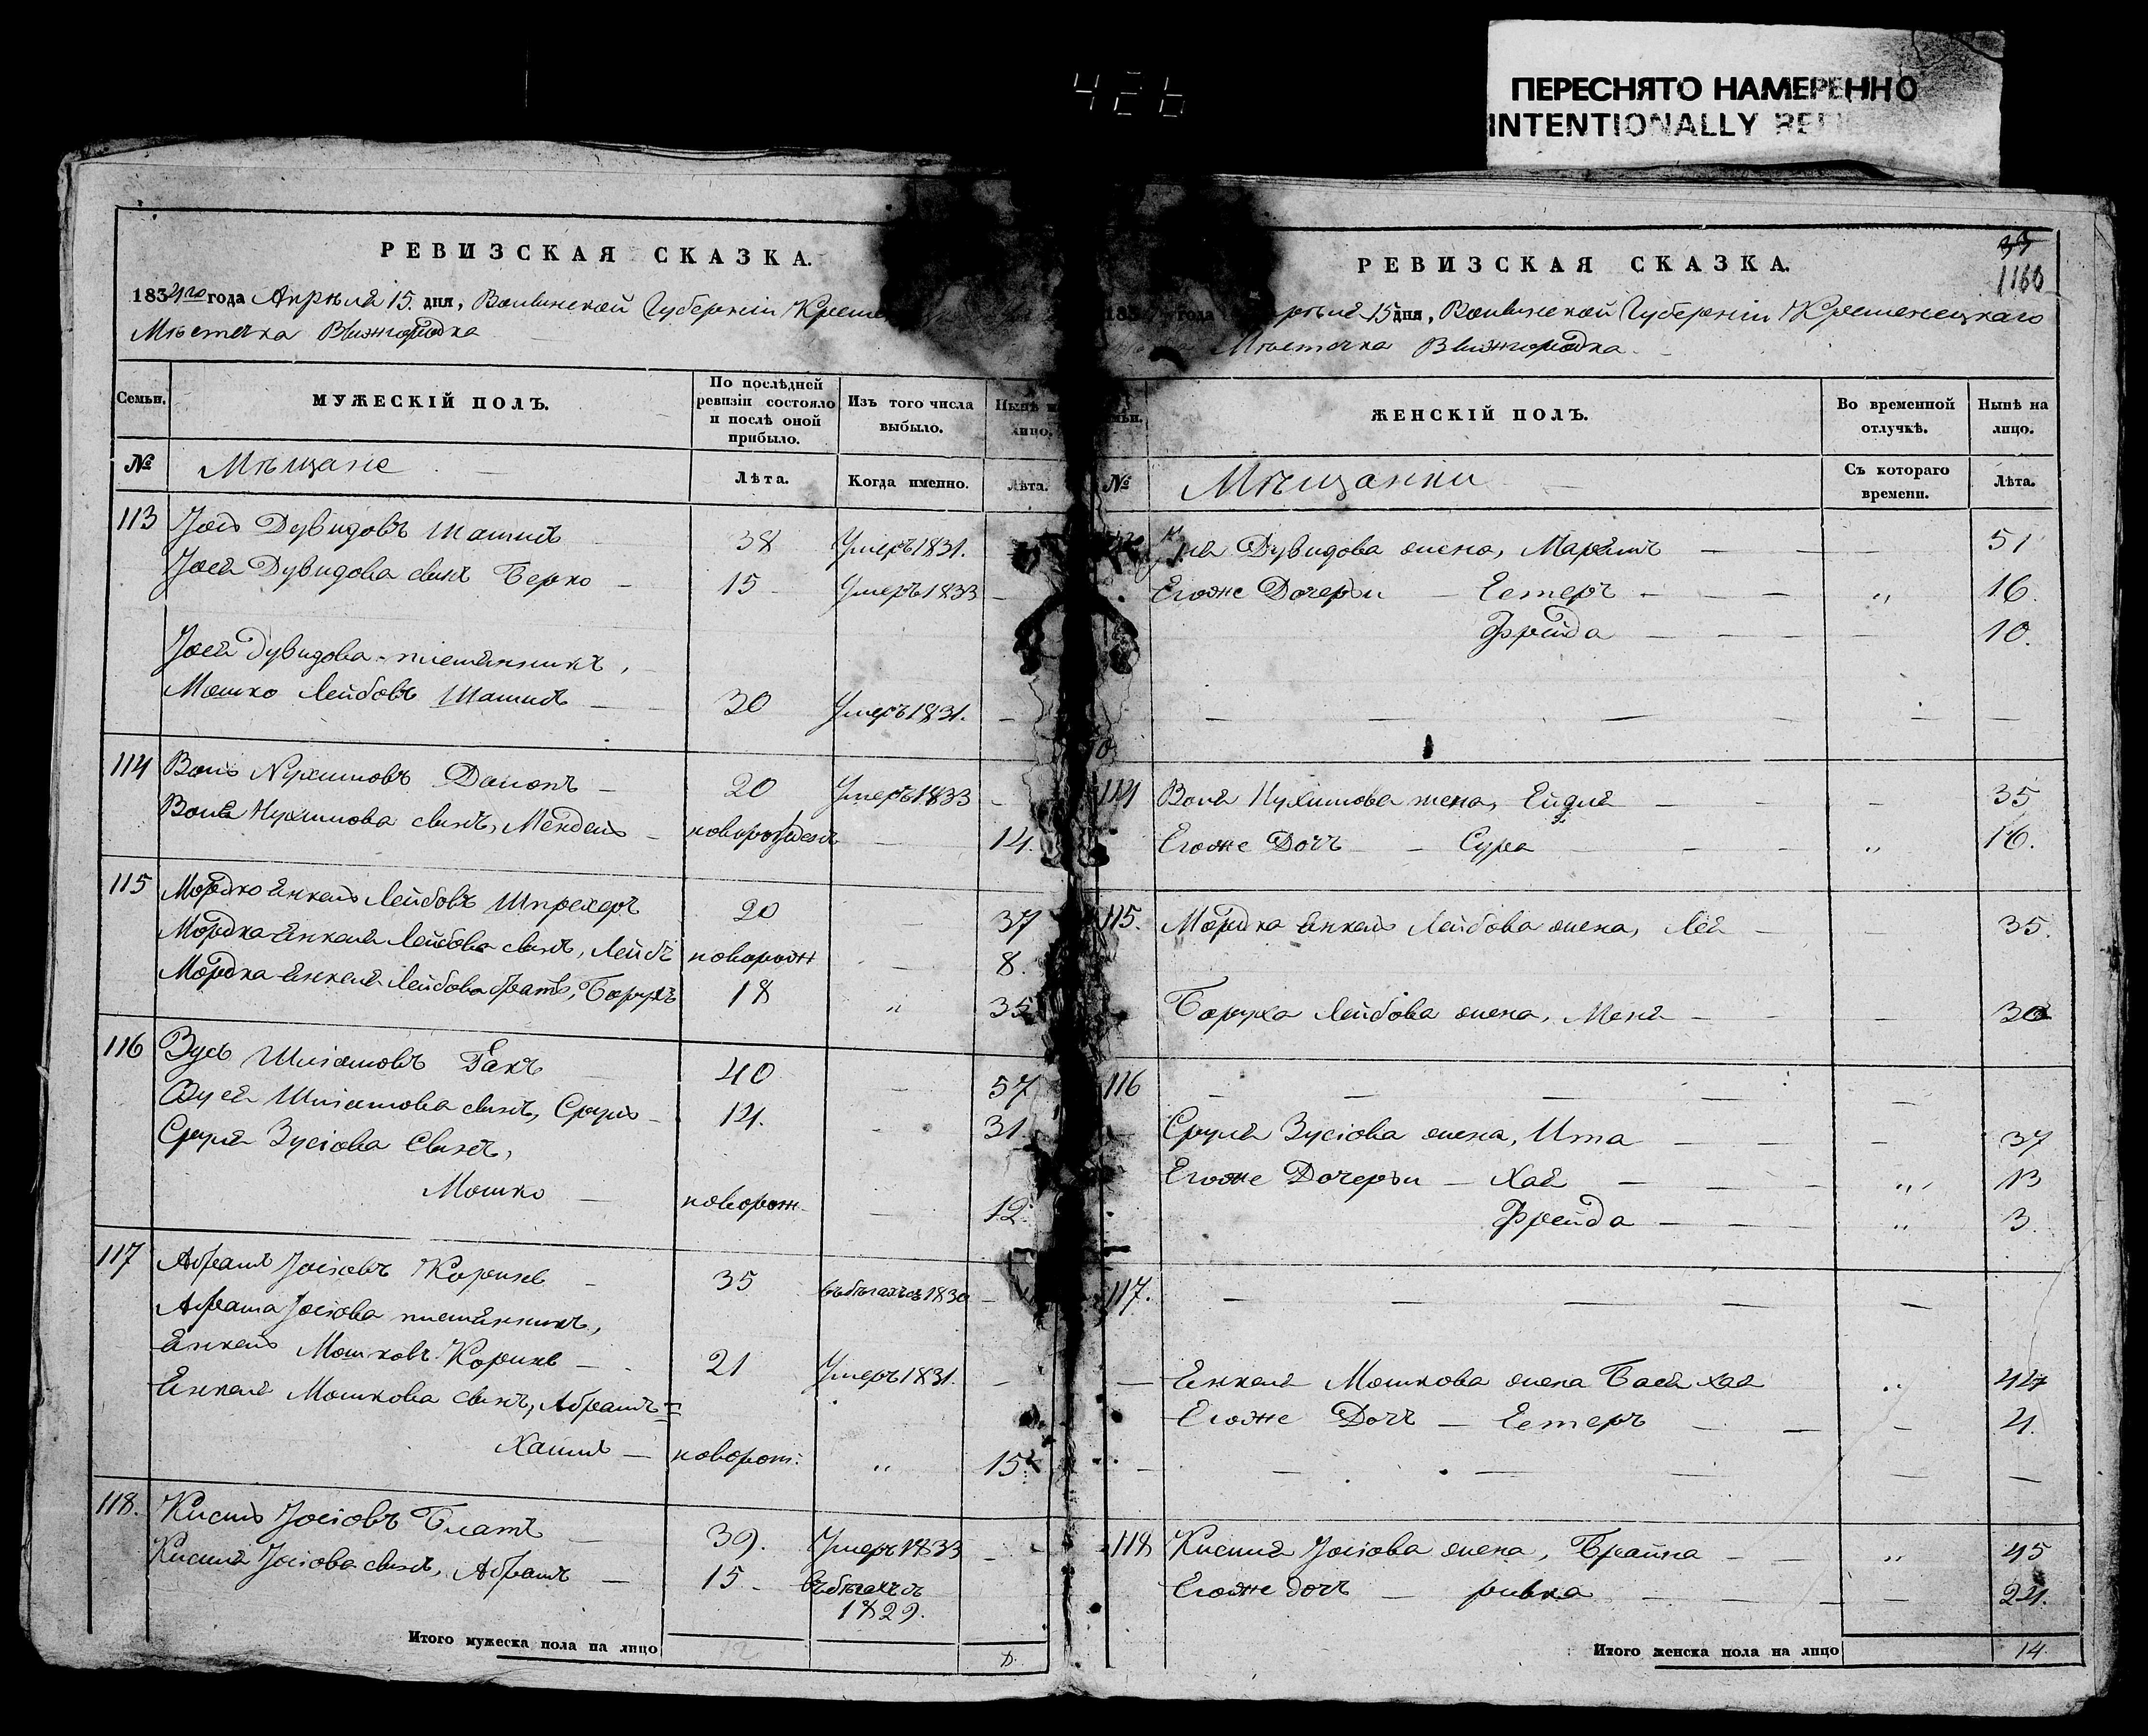 426
ПЕРЕСНЯТО НАМЕРЕННО
INTENTIONALLY
РЕВИЗСКАЯ СКАЗКА.
1834го года Апрѣля 15. дня, Волынской Губерніи
Мѣстечка Вышгородка
Семьи.
МУЖЕСКІЙ ПОЛЪ.
По послѣдней ревизіи состояло и послѣ оной прибыло.
Изъ того числа выбыло.
Нынѣ на лицо.
№ Мѣщане
Лѣта.
Когда именно.
Лѣта.
113 Іось Дувидовъ 38 Умеръ 1831.
Іося Дувидова сынъ Берко 15 Умеръ 1833
Іося Дувидова племянникъ,
Мошко Лейбовъ 30 Умеръ 1831.
114 Воль Нухимовъ 20 Умеръ 1833
Воля Нухимова сынъ, Мендель новорожденъ 14.
115 Мордко Янкель Лейбовъ Шпрехеръ 20 37
Мордка Янкеля Лейбова сынъ, Лейбъ новорожд 8.
Мордка Янкеля Лейбова братъ, Борухъ 18 " 35
116 Зусь Шліомовъ Гакъ 40 57
Зуся Шліомова сынъ, Сруль 14. 31
Сруля Зусіова Сынъ,
Мошко новорож 12
117 Абрамъ Іосіовъ 35 въ бѣгахъ съ 1830
Абрама Іосіова племянникъ,
Янкель Мошковъ 21 Умеръ 1831.
Янкеля Мошкова сынъ, Абрамъ=
Хаимъ новорож. " 15
118. Кисиль Іосіовъ Блатъ 39. Умеръ 1833
Кисиля Іосіова сынъ, Абрамъ 15 въ бѣгахъ съ
1829.
Итого мужеска пола на лицо 8.
35
1160
РЕВИЗСКАЯ СКАЗКА.
183 года Апрѣля 15 дня, Волынской Губерніи Кременецкаго
Мѣстечка Вышгородка
Семьи.
ЖЕНСКІЙ ПОЛЪ.
Во временной отлучкѣ.
Нынѣ на лицо.
№ Мѣщанки
Съ котораго времени.
Лѣта.
Дувидова жена, 51
Егоже Дочери Естеръ " 16.
Фрейда 10.
114 Воля Нухимова жена, Ейдля 35
Егоже Дочъ Сура " 16.
115. Мордка Янкеля Лейбова жена, Лея 35.
Боруха Лейбова жена, Меня 30
116
Сруля Зусіова жена, Ита 37
Егоже Дочери Хая " 13
Фрейда " 3.
117.
Янкеля Мошкова жена Бася Хая "
Егоже Дочъ Естеръ 4.
118 Кисиля Іосіова жена, Брайна " 45
Егоже дочъ ривка 24.
Итого женска пола на лицо 14.